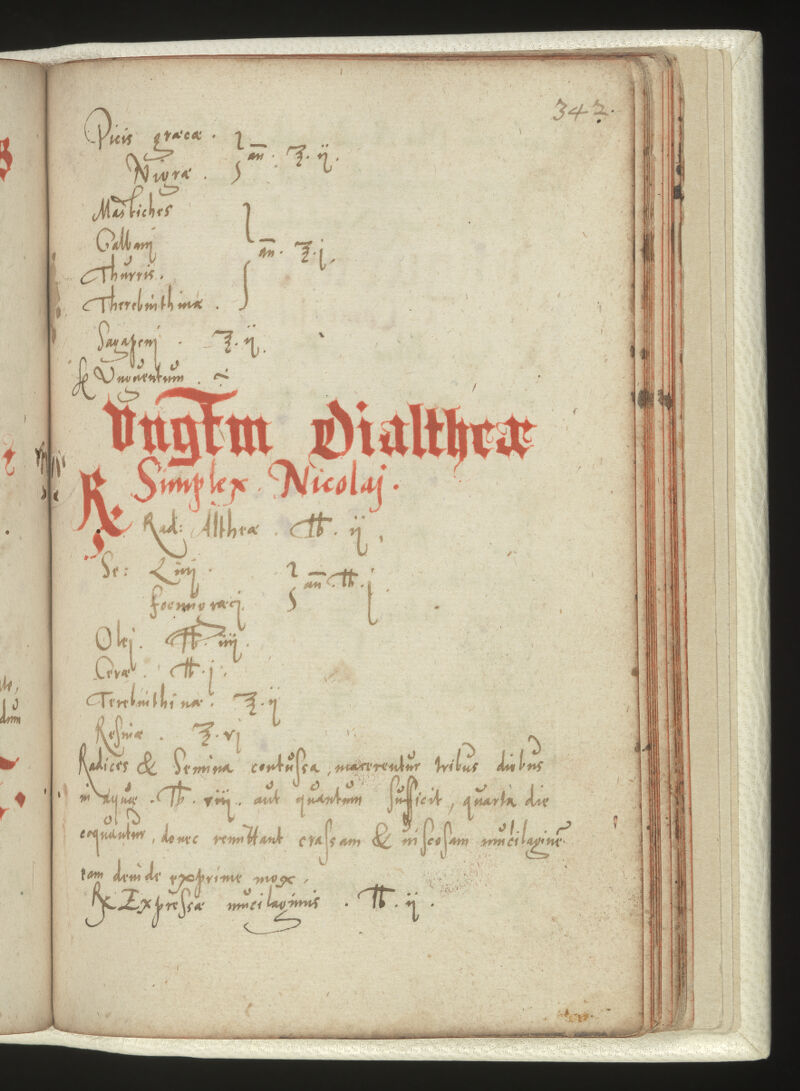 342.
Picis græcæ . } an̄. ℥. ij.
Nigræ .
Mastiches
Galbanj } an̄. ℥. j.
Thurris.
Therebinthinæ .
Sagapenj . ℥. ij.
Unguentum .
Vngt̄m Dialtheæ
℞. Simplex Nicolaj.
Rad: Altheæ . ℔. ij.
Se: Linj . } an̄. ℔. j.
foenugræcj.
Olej. ℔. iiij.
Ceræ. ℔. j.
Terebinthinæ. ℥. ij
Resinæ . ℥. vj
Radices & Semina contussa, macerentur tribus diebus
in aquæ . ℔. viij. aut quantum sufficit, quarta die
coquantur, donec remittant crassam & uiscosam mucilaginē
eam deinde exprime mox.
℞ Expressæ mucilaginis . ℔. ij.